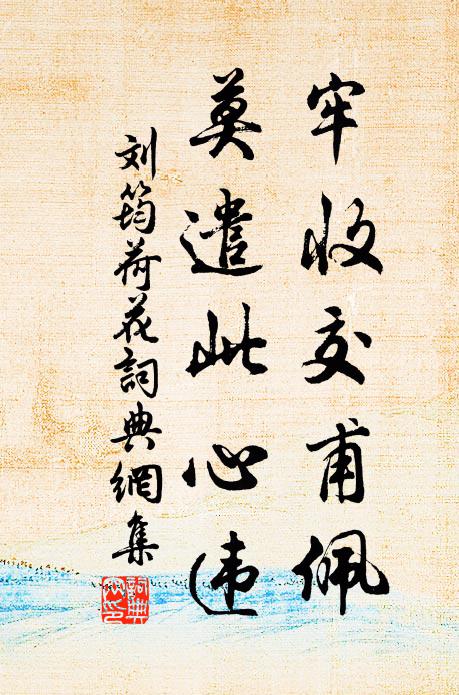 牢收交甫佩
莫遣此心违
刘筠荷花詞典網集
詞典